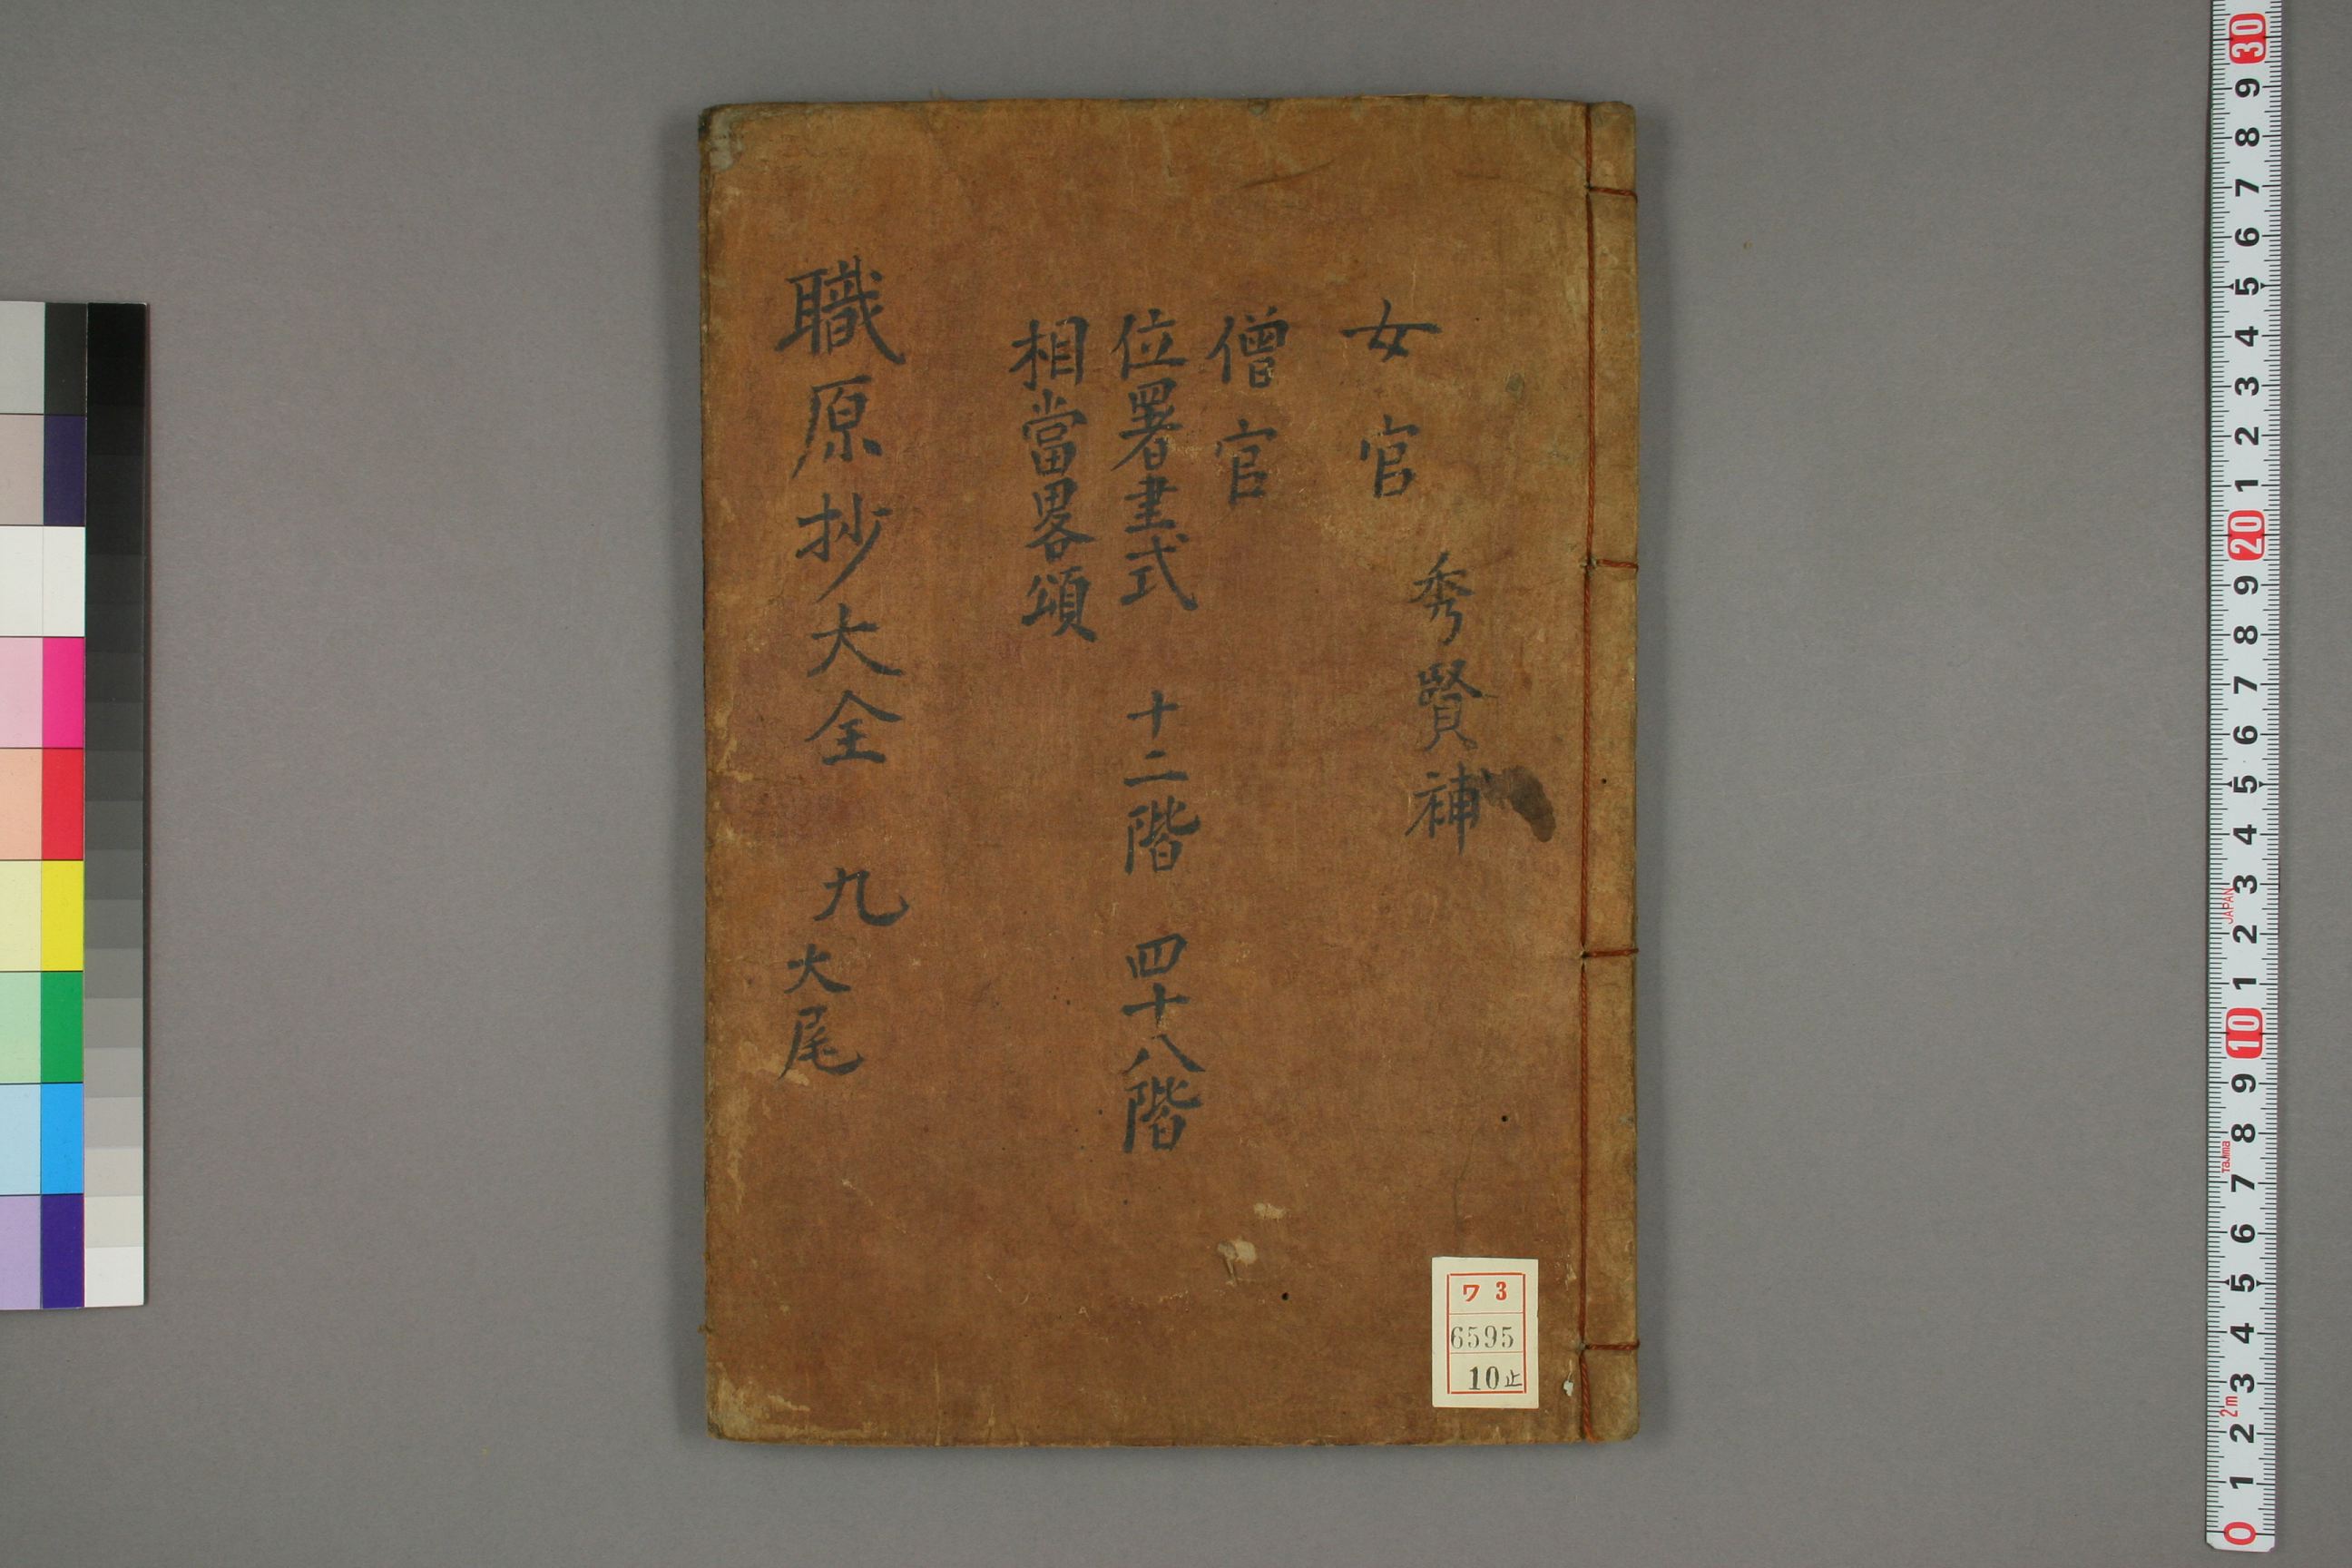 秀賢補
女官
僧官
位署書式 十二階 四十八階
相當畧頌
職原抄大全 九 大尾
ワ 3
6595
10止
30
9
8
7
6
5
4
3
2
1
20
9
8
7
6
5
4
3
JAPAN
2
1
10
9
8
Tajima
7
6
5
4
3
2m
2
1
0